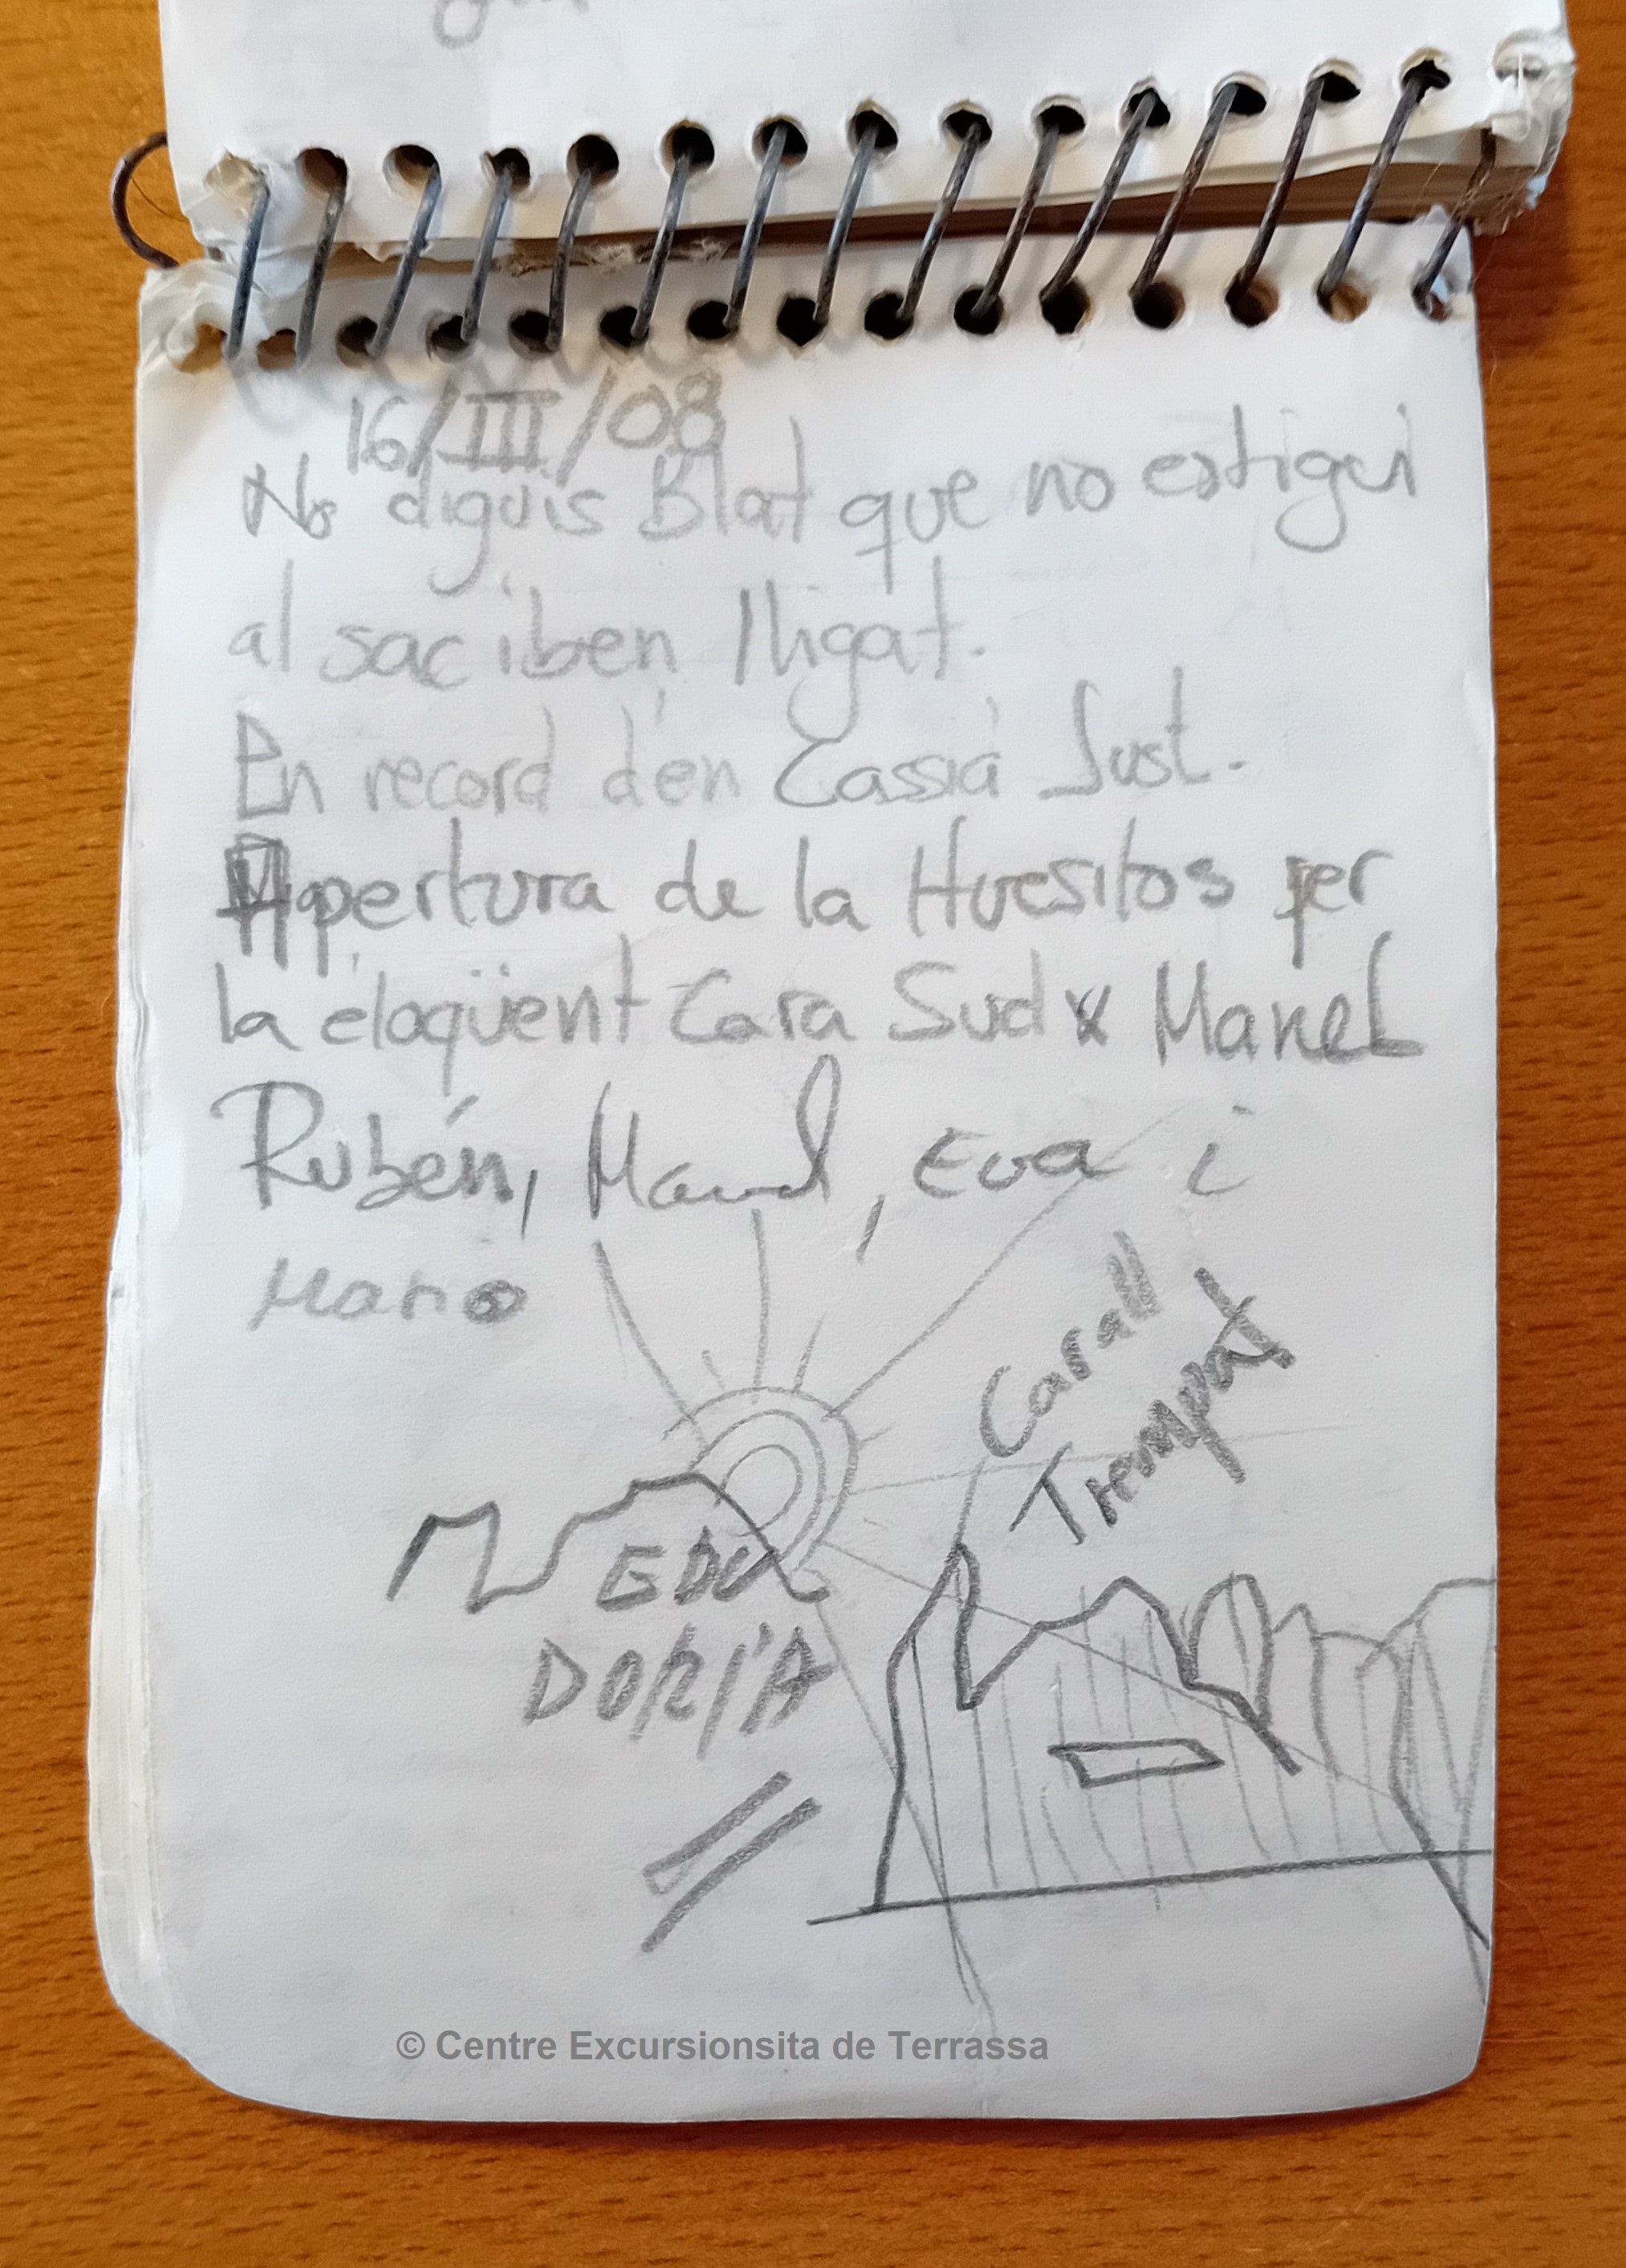 16/III/08
No diguis Blat que no estigui
al sac i ben lligat.
En record d'en Cassià Just.
Apertura de la Huesitos per
la eloqüent Cara Sud x Manel
Rubén, Manel, Eva i
Mario
Carall
Trempat
EDU
DORIA
© Centre Excursionsita de Terrassa